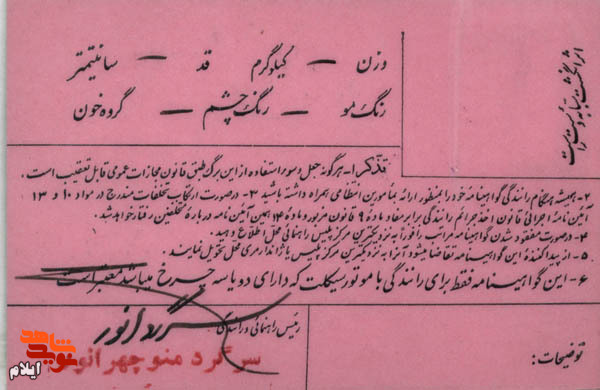 وزن — کیلوگرم قد — سانتیمتر
رنگ مو — رنگ چشم — گروه خون
اثر انگشت سبابه دست راست
تذکر: ۱- هرگونه جعل و سوء استفاده از این برگ طبق قانون مجازات عمومی قابل تعقیب است.
۲- همیشه هنگام رانندگی گواهینامه خود را بمنظور ارائه بمامورین انتظامی همراه داشته باشید ۳- درصورت ارتکاب تخلفات مندرج در مواد ۱۰ و ۱۳
آئین نامه اجرائی قانون اخذ جرائم رانندگی برابر مفاد ماده ۹ قانون مزبور و ماده ۱۴ همین آئین نامه درباره متخلفین رفتار خواهد شد.
۴- درصورت مفقود شدن گواهینامه مراتب را فوراً به نزدیکترین مرکز پلیس راهنمائی محل اطلاع دهید.
۵- از پیدا کننده این گواهینامه تقاضا میشود آنرا به نزدیکترین مرکز پلیس یا ژاندارمری محل تحویل نمایند.
۶- این گواهینامه فقط برای رانندگی با موتورسیکلت که دارای دو یا سه چرخ میباشد معتبر است
رئیس راهنمائی و رانندگی
سرگرد انور
سرگرد منوچهر انور
توضیحات:
شاهد
نوید
ایلام